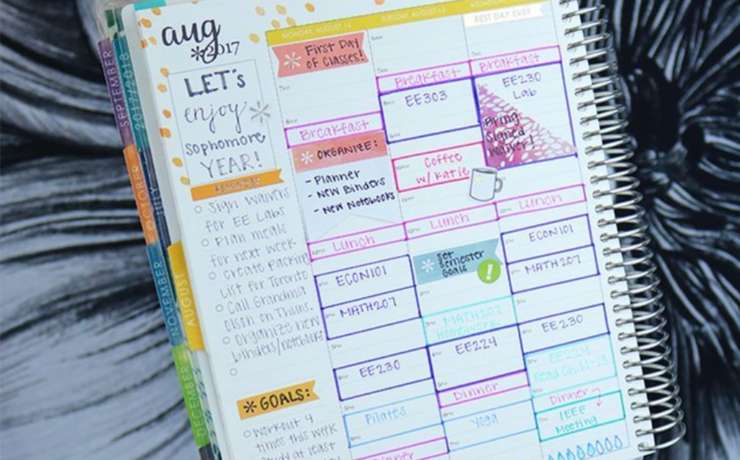 aug
2017
LET'S
enjoy
sophomore
YEAR!
Sign Waivers
for EE Labs
Plan meals
for next week
Create Packing
List for Toronto
Call Grandma
Organize new
binders/notebooks
GOALS:
Workout 4
times this week
Study at least
MONDAY, AUGUST 14
First Day
of Classes!
Breakfast
ORGANIZE:
- Planner
- New Binders
- New Notebooks
Lunch
ECON101
MATH207
EE230
Pilates
Dinner
TUESDAY, AUGUST 15
Breakfast
EE303
Coffee
w/ Katie
Lunch
Set
Semester
Goals
MATH207
Homework
EE224
Dinner
Yoga
BEST DAY EVER
Breakfast
EE230
Lab
Bring
Signed
Waiver!
Lunch
ECON101
MATH207
EE230
EE224
Dinner
IEEE
Meeting
SEPTEMBER
OCTOBER
NOVEMBER
DECEMBER
2017-2018
JULY
AUGUST